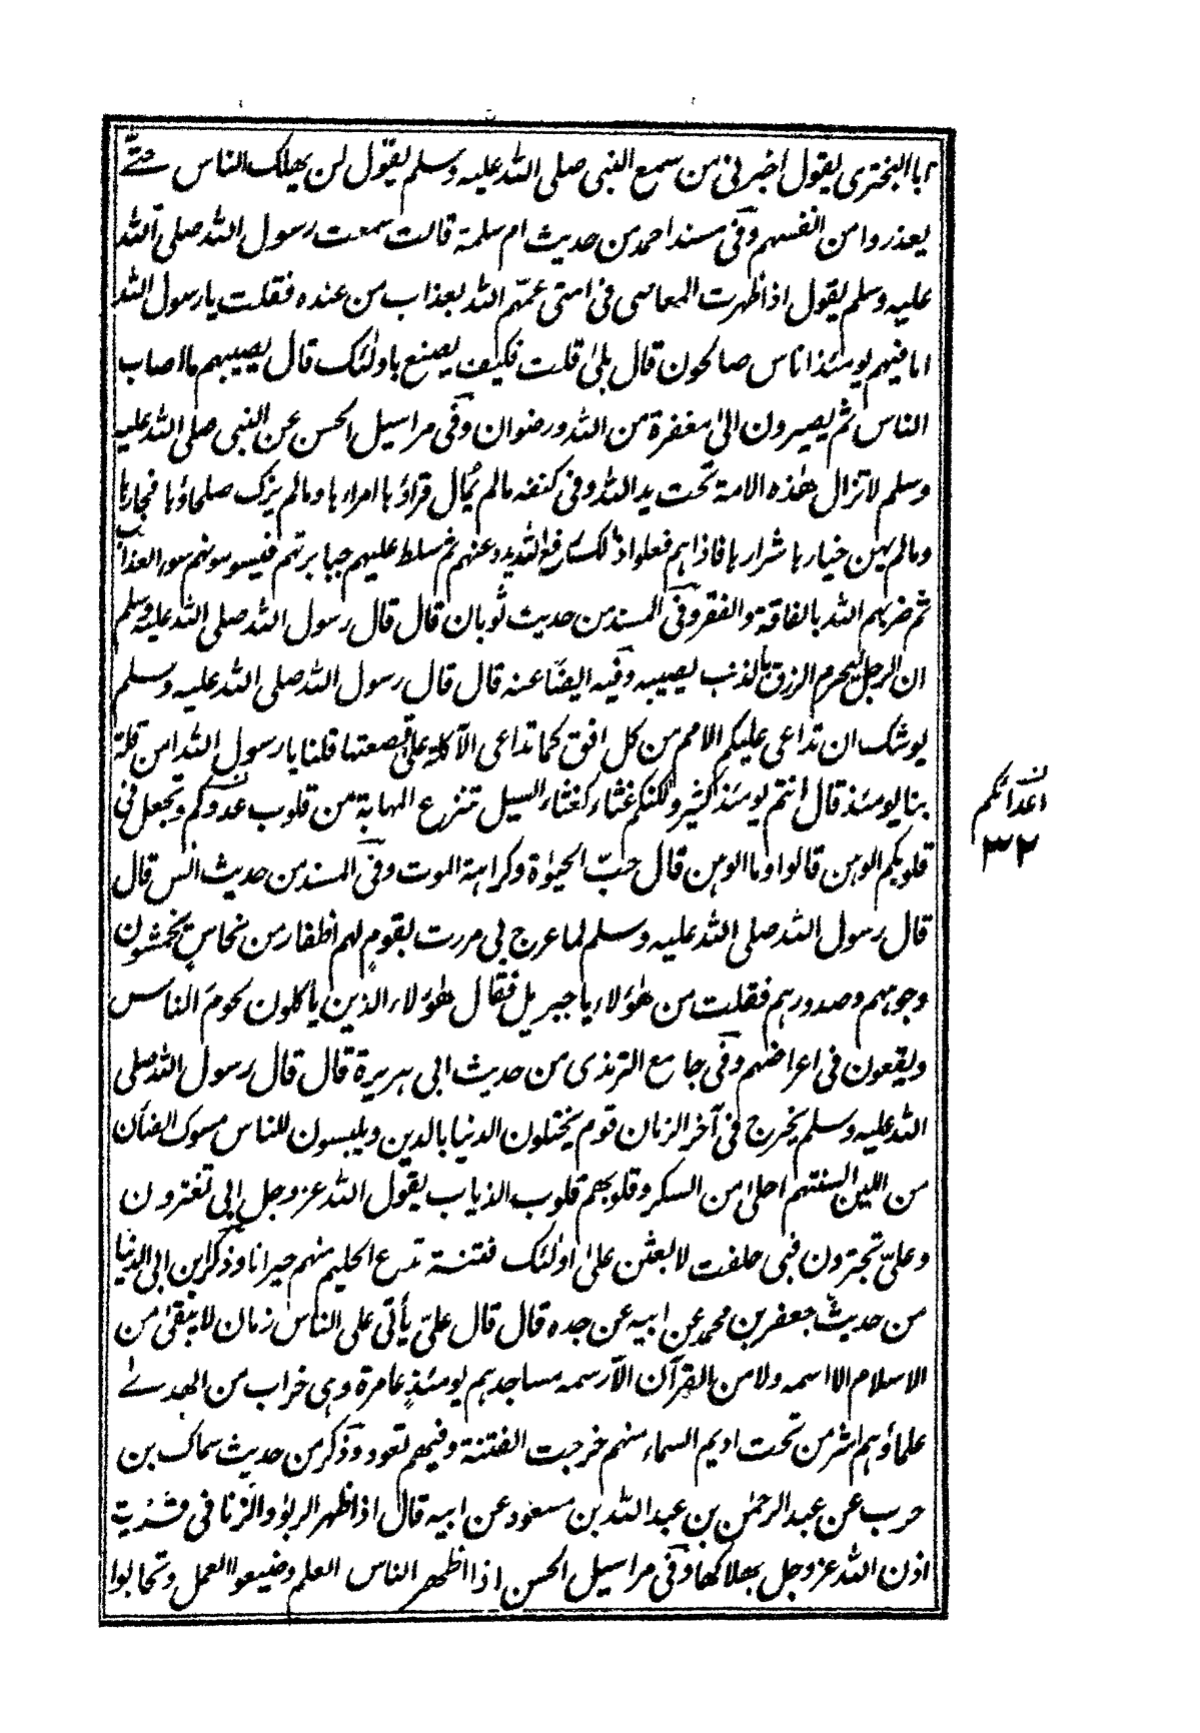 ابا البختري يقول اخبرني من سمع النبي صلى الله عليه وسلم يقول لن يهلك الناس حتے
يعذروا من انفسهم وفي مسند احمد من حديث ام سلمة قالت سمعت رسول الله صلى الله
عليه وسلم يقول اذا ظهرت المعاصي في امتي عمّهم الله بعذاب من عنده فقلت يا رسول الله
اما فيهم يومئذ اناس صالحون قال بلىٰ قلت فكيف يصنع باولئك قال يصيبهم ما اصاب
الناس ثم يصيرون الىٰ مغفرة من الله ورضوان وفي مراسيل الحسن عن النبي صلى الله عليه
وسلم لا تزال هذه الامة تحت يد الله وفي كنفه ما لم يُمال قراؤها امراءها وما لم يزك صلحاؤها فجارها
وما لم يهن خيارها شرارها فاذا هم فعلوا ذلك رفع الله يده عنهم ثم سلط عليهم جبابرتهم فيسومونهم سوء العذاب
ثم ضربهم الله بالفاقة والفقر وفي المسند من حديث ثوبان قال قال رسول الله صلى الله عليه وسلم
ان الرجل ليحرم الرزق بالذنب يصيبه وفيه ايضًا عنه قال قال رسول الله صلى الله عليه وسلم
يوشك ان تداعى عليكم الامم من كل افق كما تداعى الآكلة على قصعتها قلنا يا رسول الله امن قلة
بنا يومئذ قال انتم يومئذ كثير ولكنكم غثاء كغثاء السيل تنزع المهابة من قلوب عدوكم وتجعل في
قلوبكم الوهن قالوا وما الوهن قال حبّ الحيوٰة وكراهة الموت وفي المسند من حديث انس قال
قال رسول الله صلى الله عليه وسلم لما عرج بي مررت بقومٍ لهم اظفار من نحاسٍ يخمشون
وجوههم وصدورهم فقلت من هؤلاء يا جبريل فقال هؤلاء الذين يأكلون لحومَ الناس
ويقعون في اعراضهم وفي جامع الترمذي من حديث ابي هريرة قال قال رسول الله صلى
الله عليه وسلم يخرج في آخر الزمان قوم يختلون الدنيا بالدين ويلبسون للناس مسوك الضأن
من اللين السنتهم احلىٰ من السكر وقلوبهم قلوب الذياب يقول الله عز وجل ابي تغترون
وعليّ تجترون فبي حلفت لابعثن علىٰ اولئك فتنة تدع الحليم منهم حيرانا وذكر ابن ابي الدنيا
من حديث جعفر بن محمد عن ابيه عن جده قال قال عليّ يأتي على الناس زمان لا يبقىٰ من
الاسلام الا اسمه ولا من القرآن الا رسمه مساجدهم يومئذٍ عامرة وهي خراب من الهدے
علماؤهم اشر من تحت اديم السماء منهم خرجت الفتنة وفيهم تعود وذكر من حديث سماك بن
حرب عن عبد الرحمٰن بن عبد الله بن مسعود عن ابيه قال اذا ظهر الربوٰا والزنا في قرية
اذن الله عز وجل بهلاكها وفي مراسيل الحسن اذا اظهر الناس العلم وضيعوا العمل وتحابوا
اعدائكم
٣٢